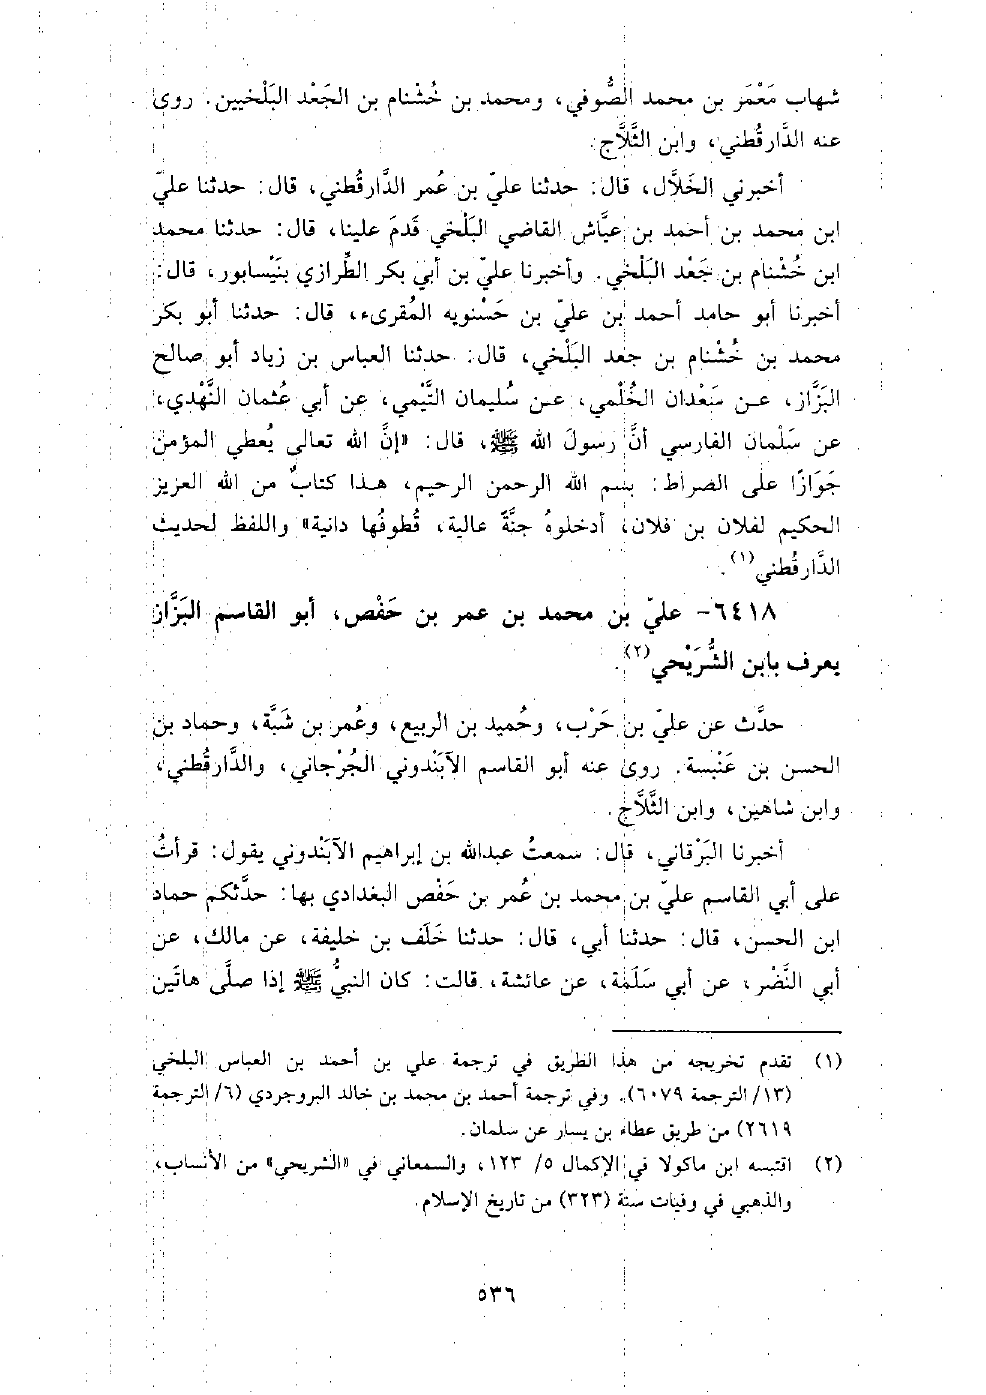 شهاب مَعْمَر بن محمد الصُّوفي، ومحمد بن خُشْنام بن الجَعْد البَلْخيين. روى
عنه الدَّارقُطني، وابن الثَّلَّاج.
أخبرني الخَلَّال، قال: حدثنا عليّ بن عُمر الدَّارقُطني، قال: حدثنا عليّ
ابن محمد بن أحمد بن عيَّاش القاضي البَلْخي قَدمَ علينا، قال: حدثنا محمد
ابن خُشْنام بن جَعْد البَلْخي. وأخبرنا عليّ بن أبي بكر الطِّرازي بنَيْسابور، قال:
أخبرنا أبو حامد أحمد بن عليّ بن حَسْنويه المُقرىء، قال: حدثنا أبو بكر
محمد بن خُشْنام بن جعد البَلْخي، قال: حدثنا العباس بن زياد أبو صالح
البَزَّاز، عن سَعْدان الخُلْمي، عن سُليمان التَّيْمي، عن أبي عثمان النَّهْدي،
عن سَلْمان الفارسي أنَّ رسولَ الله ﷺ، قال: «إنَّ الله تعالى يُعطي المؤمن
جَوَازًا على الصراط: بسم الله الرحمن الرحيم، هذا كتابٌ من الله العزيز
الحكيم لفلان بن فلان، أدخلوهُ جنَّةً عالية، قُطوفُها دانية» واللفظ لحديث
الدَّارقُطني(١).
٦٤١٨- عليّ بن محمد بن عمر بن حَفْص، أبو القاسم البَزَّاز
يعرف بابن الشُّرَيْحي(٢).
حدَّث عن عليّ بن حَرْب، وحُميد بن الربيع، وعُمر بن شَبَّة، وحماد بن
الحسن بن عَنْبسة. روى عنه أبو القاسم الآبَنْدوني الجُرْجاني، والدَّارقُطني،
وابن شاهين، وابن الثَّلَّاج.
أخبرنا البَرْقاني، قال: سمعتُ عبدالله بن إبراهيم الآبَنْدوني يقول: قرأتُ
على أبي القاسم عليّ بن محمد بن عُمر بن حَفْص البغدادي بها: حدَّثكم حماد
ابن الحسن، قال: حدثنا أبي، قال: حدثنا خَلَف بن خليفة، عن مالك، عن
أبي النَّضْر، عن أبي سَلَمة، عن عائشة، قالت: كان النبيُّ ﷺ إذا صلَّى هاتَين
(١) تقدم تخريجه من هذا الطريق في ترجمة علي بن أحمد بن العباس البلخي
(١٣/ الترجمة ٦٠٧٩). وفي ترجمة أحمد بن محمد بن خالد البروجردي (٦/ الترجمة
٢٦١٩) من طريق عطاء بن يسار عن سلمان.
(٢) اقتبسه ابن ماكولا في الإكمال ٥/ ١٢٣، والسمعاني في «الشريحي» من الأنساب،
والذهبي في وفيات سنة (٣٢٣) من تاريخ الإسلام.
٥٣٦